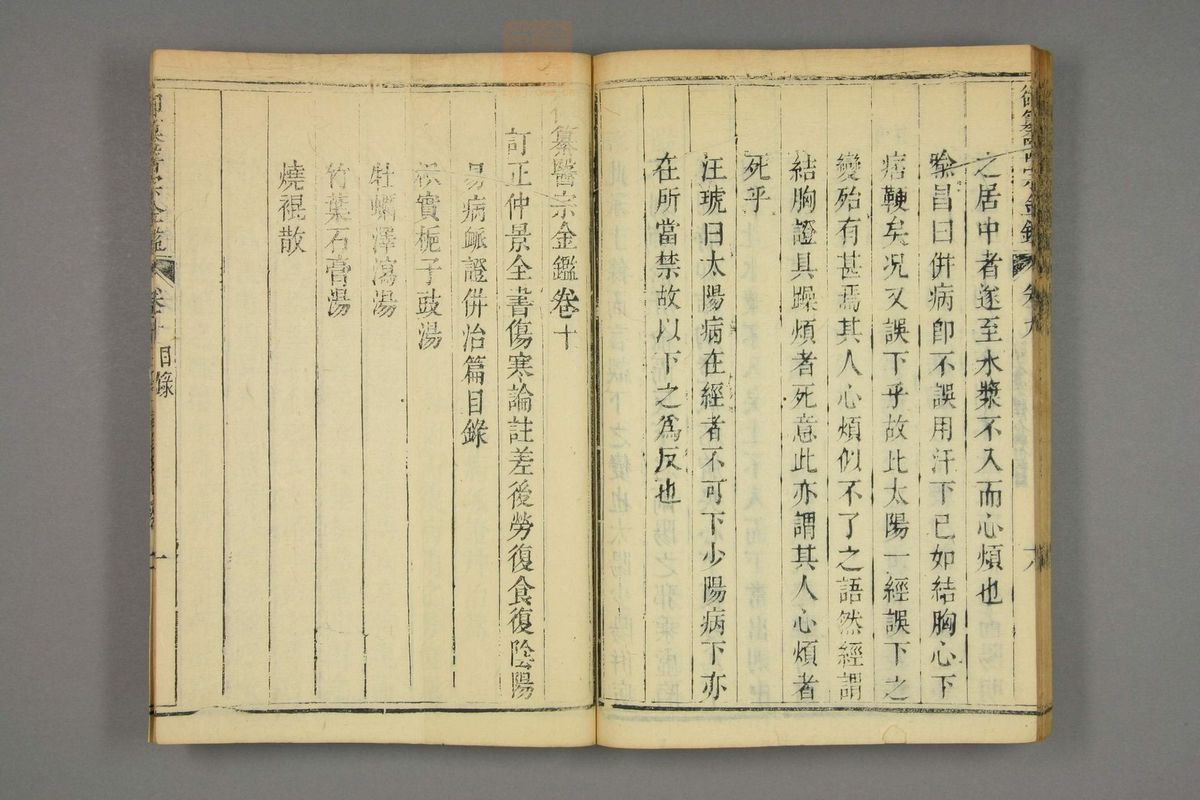 之居中者遂至水漿不入而心煩也
喻昌曰併病即不誤用汗下已如結胸心下
痞鞕矣况又誤下乎故比太陽一經誤下之
變殆有甚焉其人心煩似不了之語然經謂
結胸證具躁煩者死意此亦謂其人心煩者
死乎
汪琥曰太陽病在經者不可下少陽病下亦
在所當禁故以下之為反也
卷九
纂醫宗金鑑卷十
訂正仲景全書傷寒論註差後勞復食復陰陽
易病脈證併治篇目錄
枳實梔子豉湯
牡蠣澤瀉湯
竹葉石膏湯
燒裩散
醫宗金鑑
卷十目錄
一